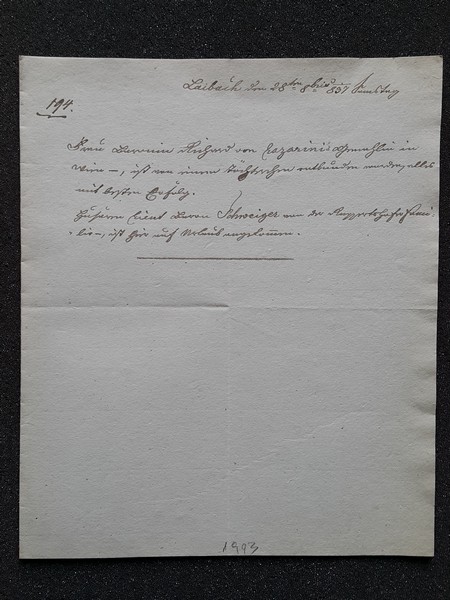 Laibach den 28ten 8bris 837 Samstag
194.
Frau Baronin Richard von Lazarini's Gemahlin in
Wien –, ist von einem Töchterchen entbunden worden, alles
mit besten Erfolg.
Husaren Lieut Baron Schweiger von der Fami
lien, ist hier auf Urlaub angekommen.
1993